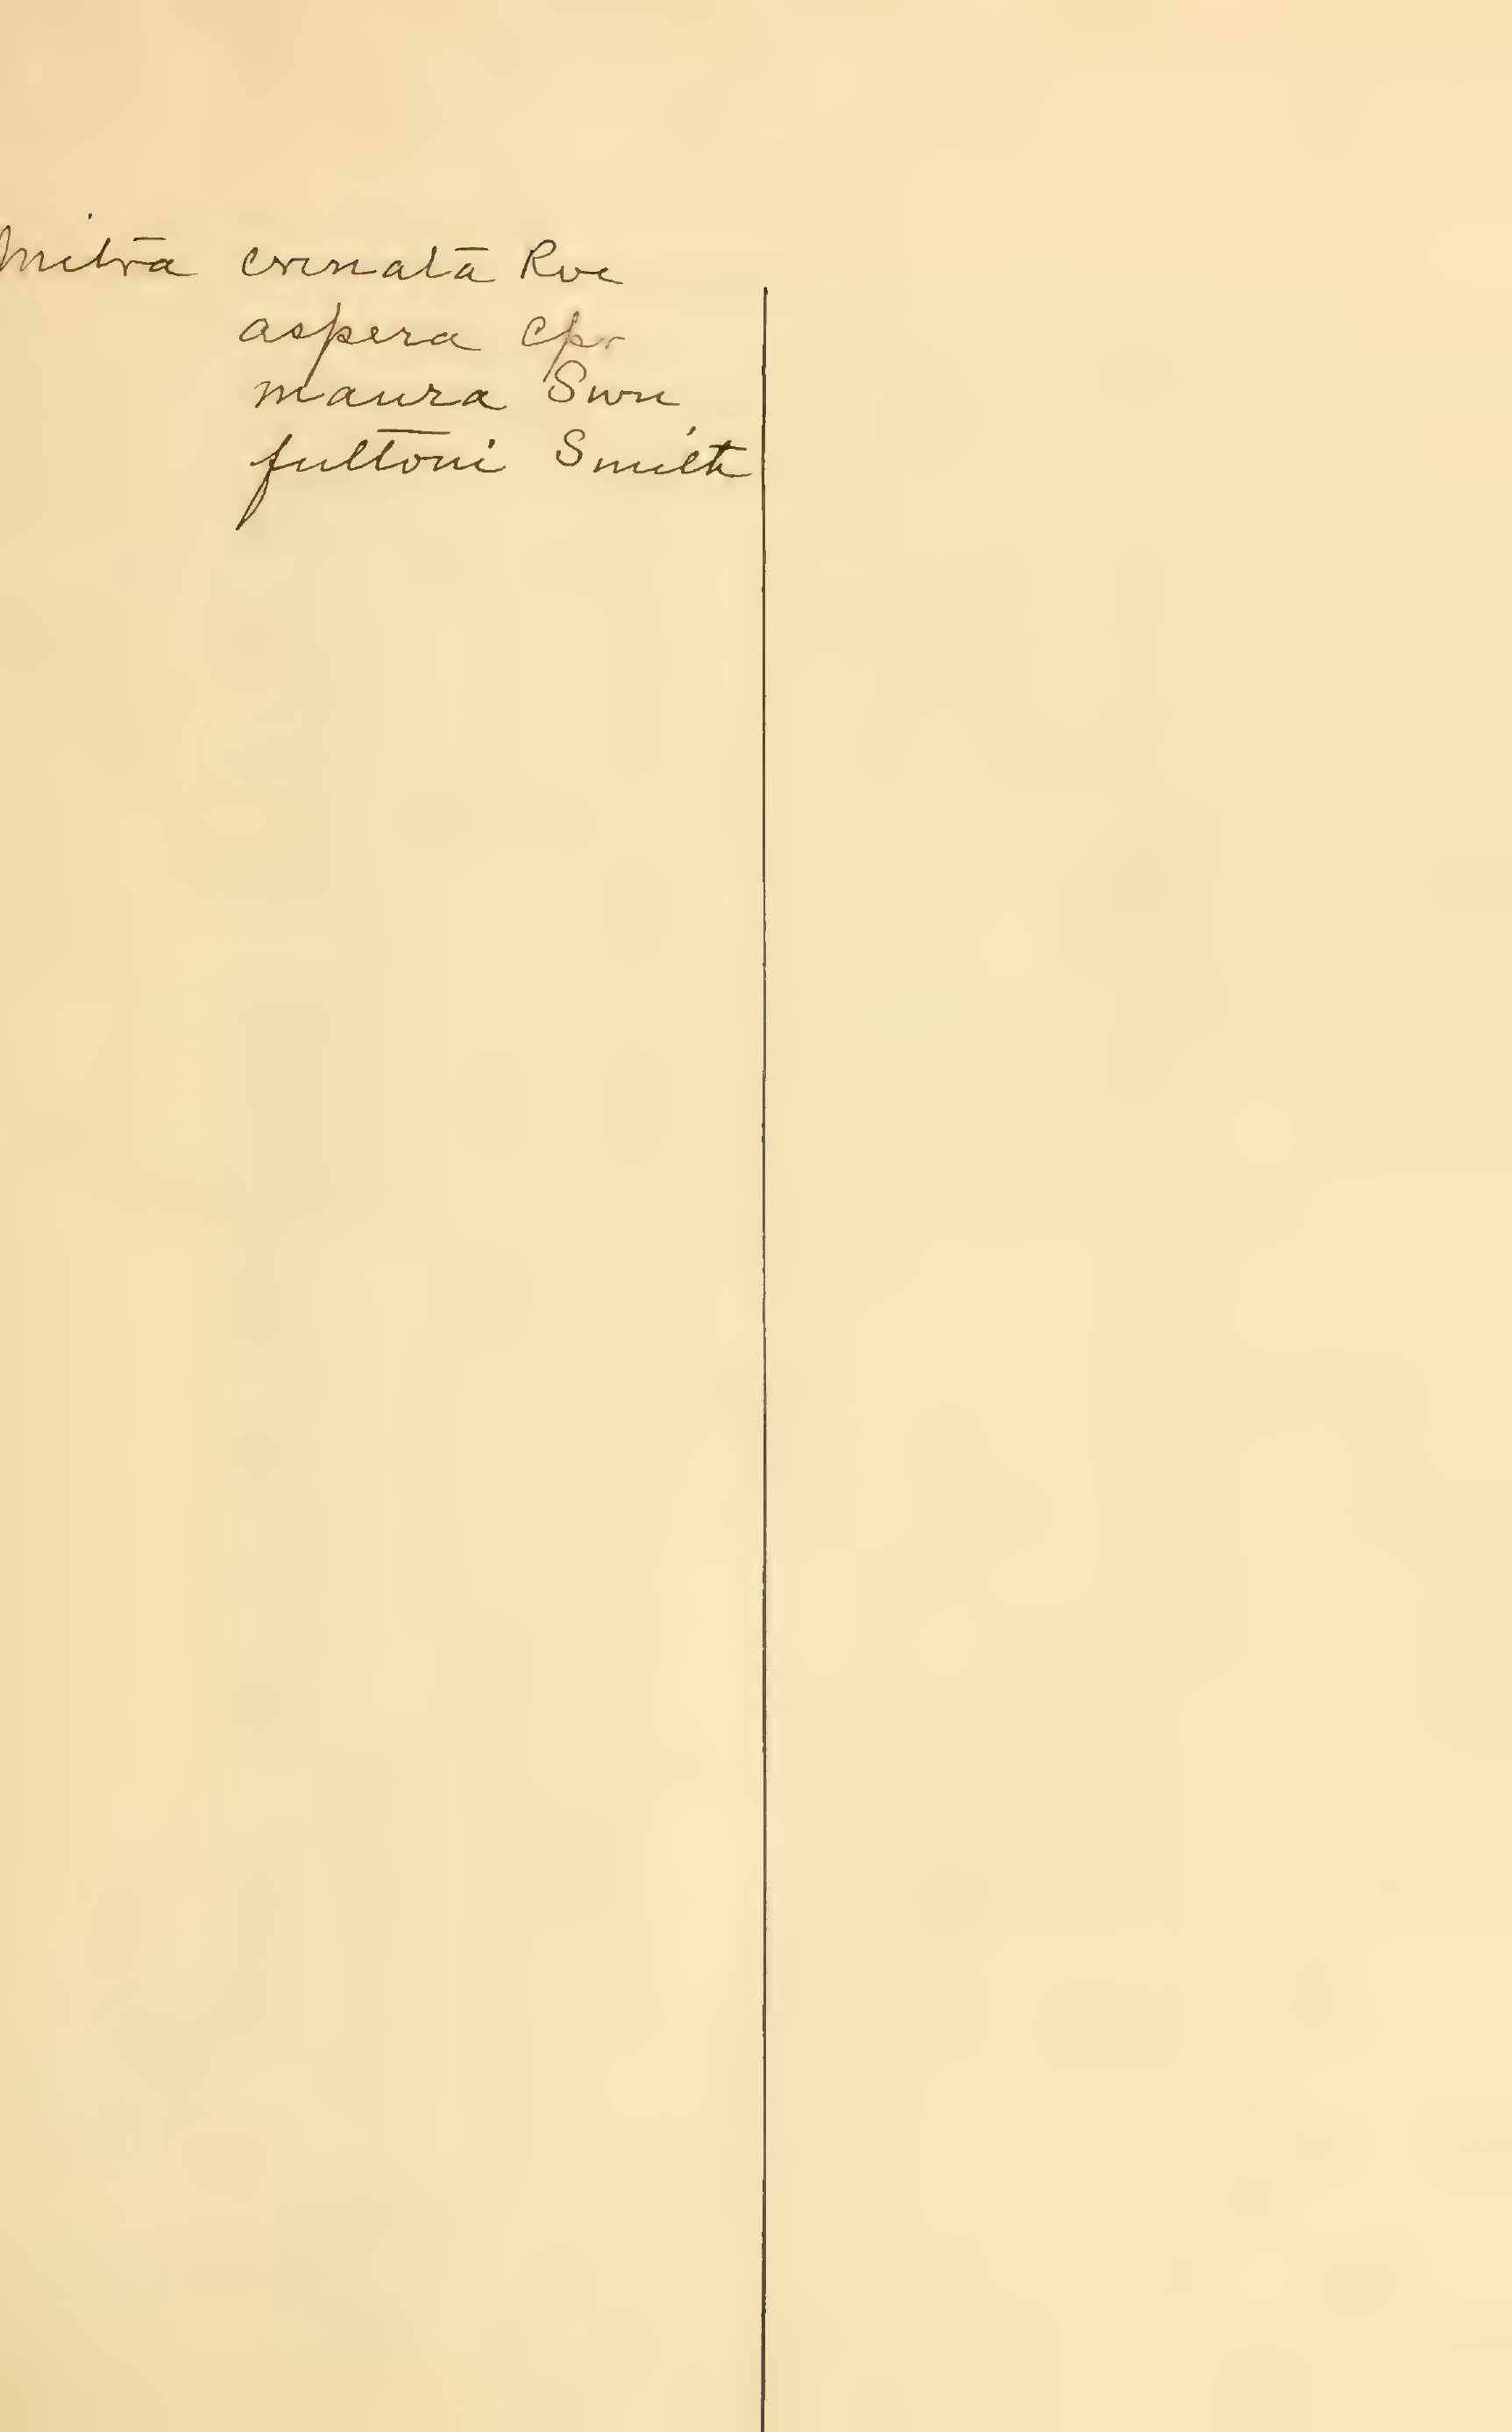 Mitra crenata Rve
aspera Cpr
maura Swn
fultoni Smith